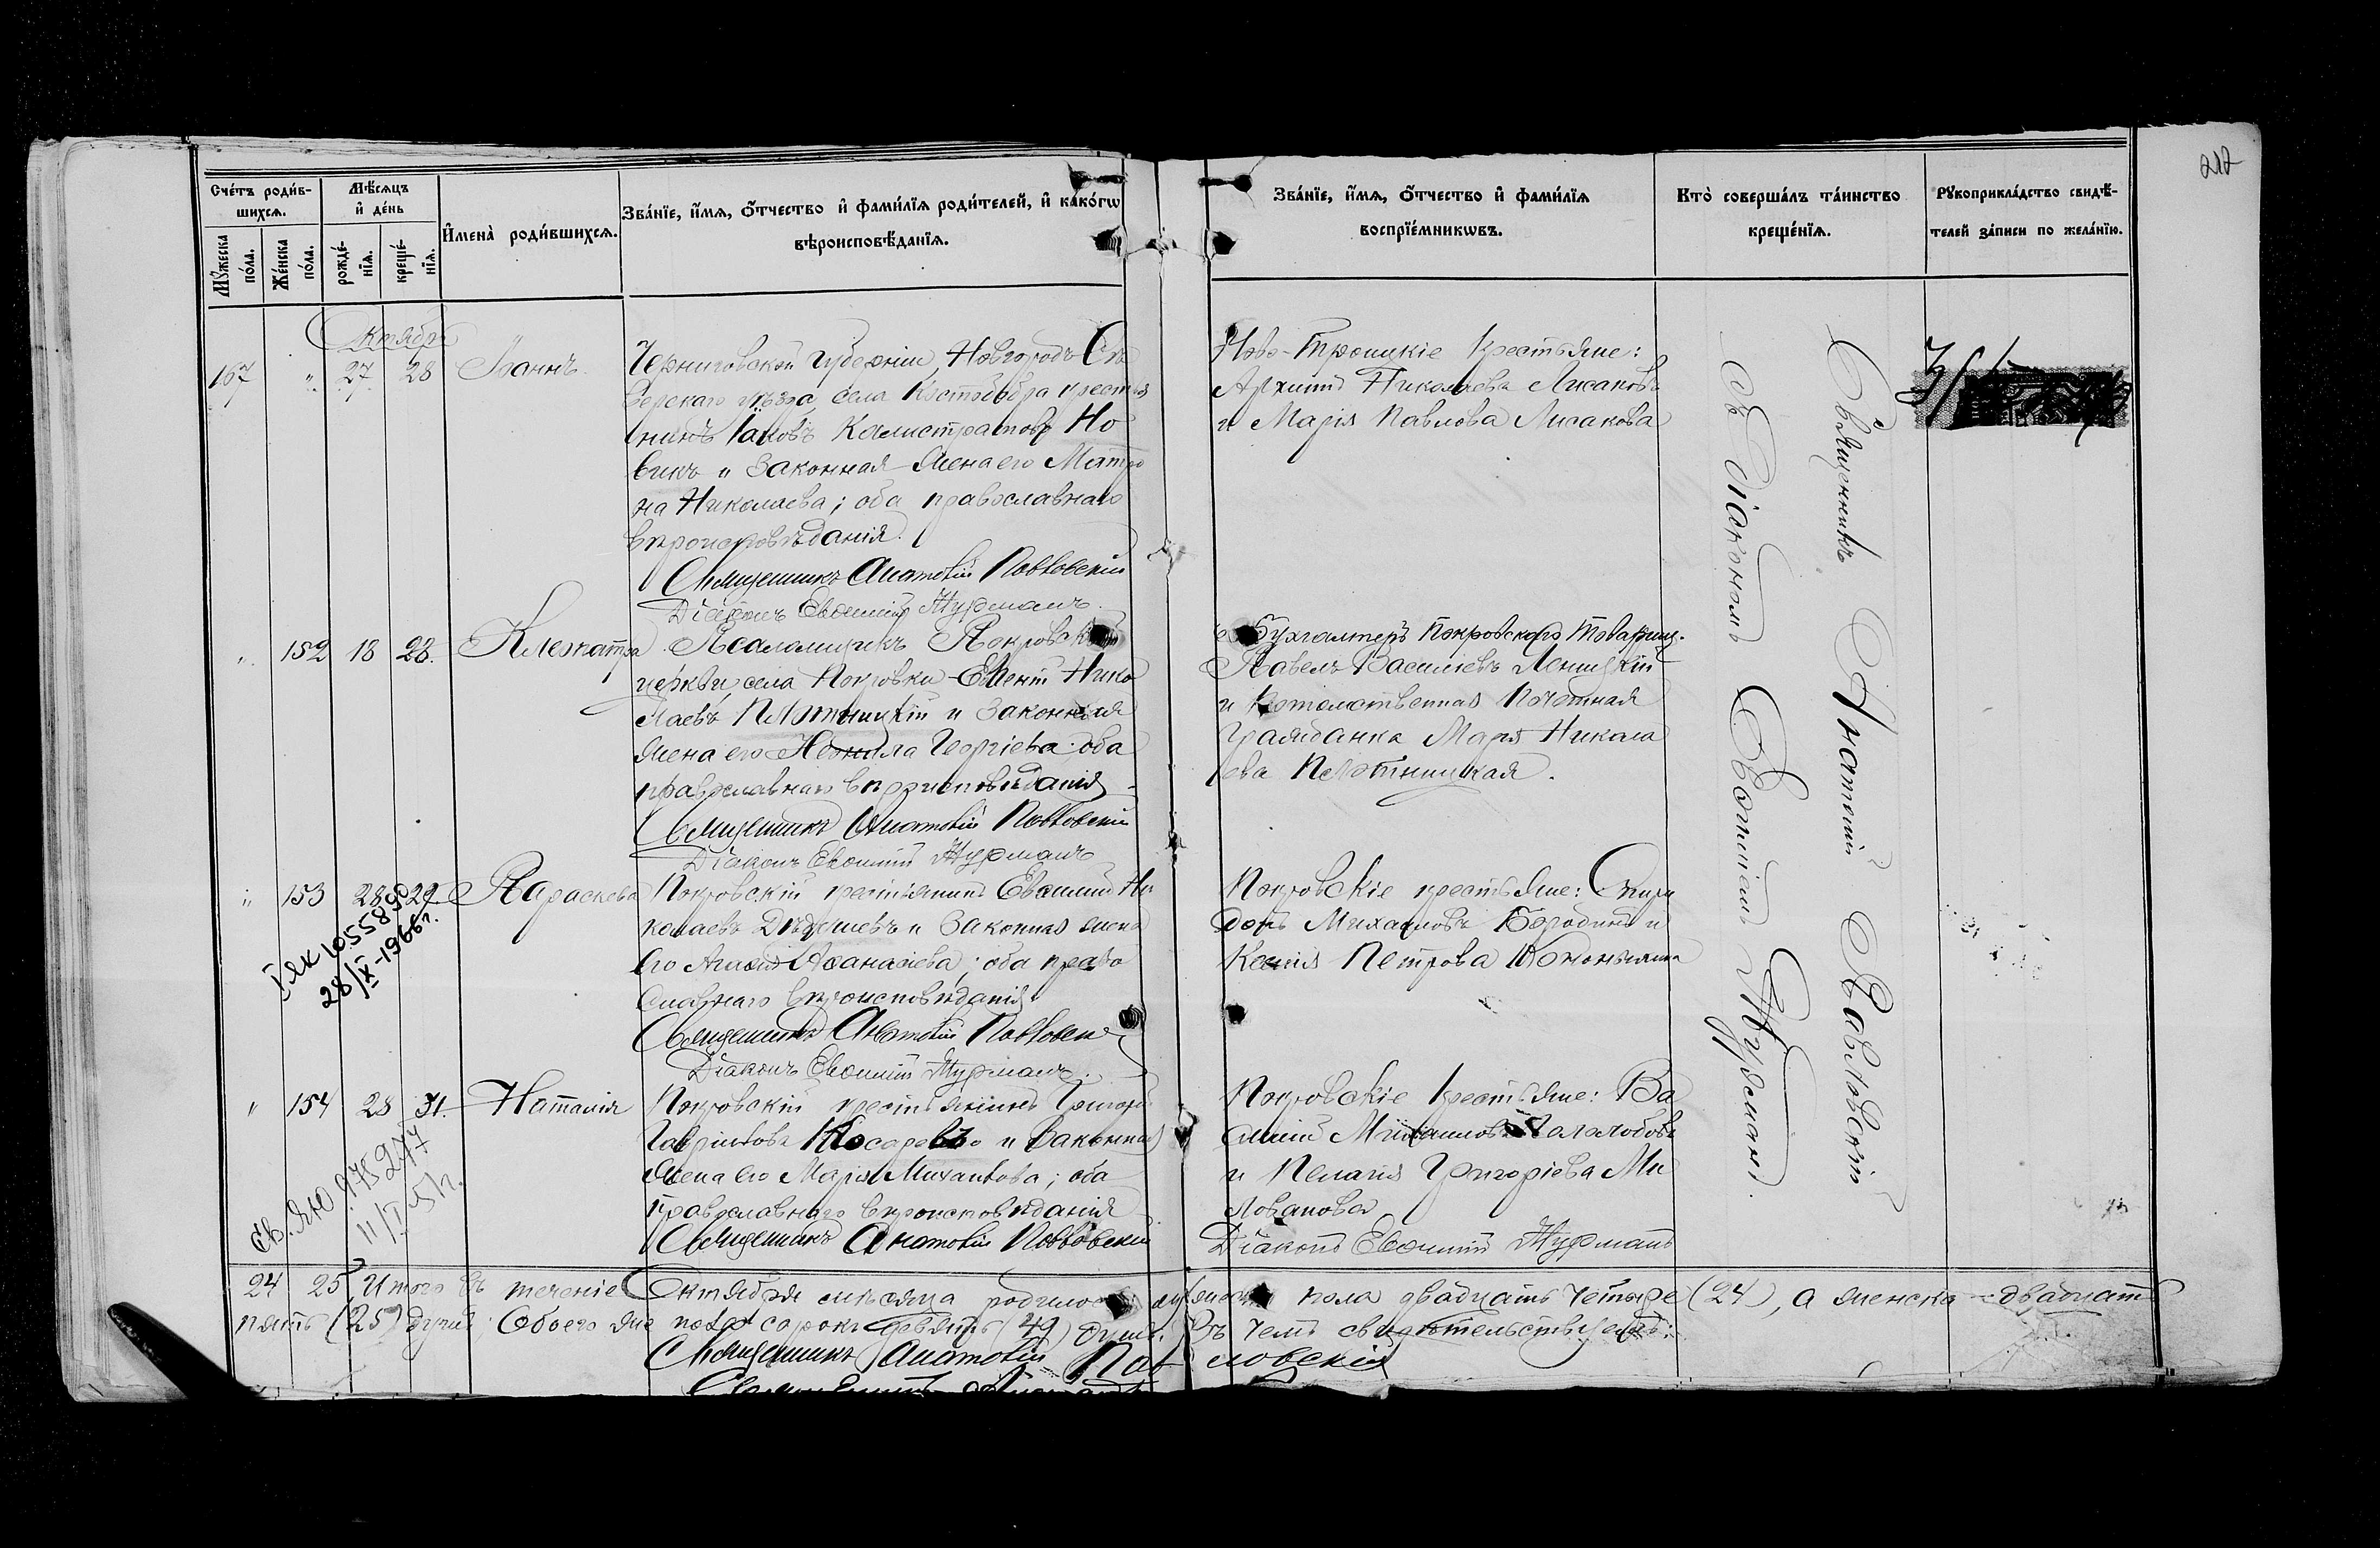 212
Счетъ родившихся.
Мѣсяцъ и день
Мужеска пола.
Женска пола.
рожденія.
крещенія.
Имена родившихся.
Званіе, имя, отчество и фамилія родителей, и какогѡ
вѣроисповѣданія.
Званіе, имя, отчество и фамилія
воспріемникѡвъ.
Кто совершалъ таинство
крещенія.
Рукоприкладство свидѣ-
телей записи по желанію.
Октябрь
167 " 27 28 Іоаннъ
Черниговской губерніи, Новгородъ Сѣ
верскаго уѣзда, села Костобобра крестья
нинъ Іаковъ Калистратовъ Но
викъ и законная жена его Матро
на Николаева; оба православнаго
вѣроисповѣданія.
Священникъ Анатолій Павловскій
Діаконъ Евѳимій Журманъ.
Ново-Троицкіе крестьяне:
Архипъ Николаевъ Лисаковъ
и Марія Павлова Лисакова
" 152 18 28. Клеопатра
Псаломщикъ Покровской
церкви, села Покровки Николаевъ и законная
жена его Георгіева оба
православнаго вѣроисповѣданія
Священникъ Анатолій Павловскій
Діаконъ Евѳимій Журманъ
Бухгалтеръ Покровскаго Товарищ.
Павелъ Василіевъ
и потомственная почетная
гражданка Марія Никола
ева
" 153 28 29. Параскева
Покровскій крестьянинъ Евѳимій Ни
колаевъ и законная жена
его Аѳанасіева; оба право
славнаго вѣроисповѣданія
Священникъ Анатолій Павловскій
Діаконъ Евѳимій Журманъ.
Покровскіе крестьяне: Спири
донъ Михаиловъ Бородинъ и
Ксенія Петрова
I ЯК 1055890
28/IX-1966г.
" 154 28 31. Наталія
Покровскій крестьянинъ Григорій
Гавриловъ Косаревъ и законная
жена его Марія Михаилова; оба
православнаго вѣроисповѣданія
Священникъ Анатолій Павловскій
Покровскіе крестьяне: Ва
силій Михаиловъ
и Пелагія Григоріева Ми
лованова
Діаконъ Евѳимій Журманъ
Св. ЯЮ 975277
Священникъ Анатолій Павловскій
съ Діакономъ Евѳиміемъ Журманъ.
24 25 Итого въ теченіе Октября мѣсяца родилось мужеска пола двадцать четыре (24), а женска двадцать
пять (25) душъ. Обоего же пола сорокъ девять (49) душъ. Въ чемъ свидѣтельствуемъ:
Священникъ Анатолій Павловскій